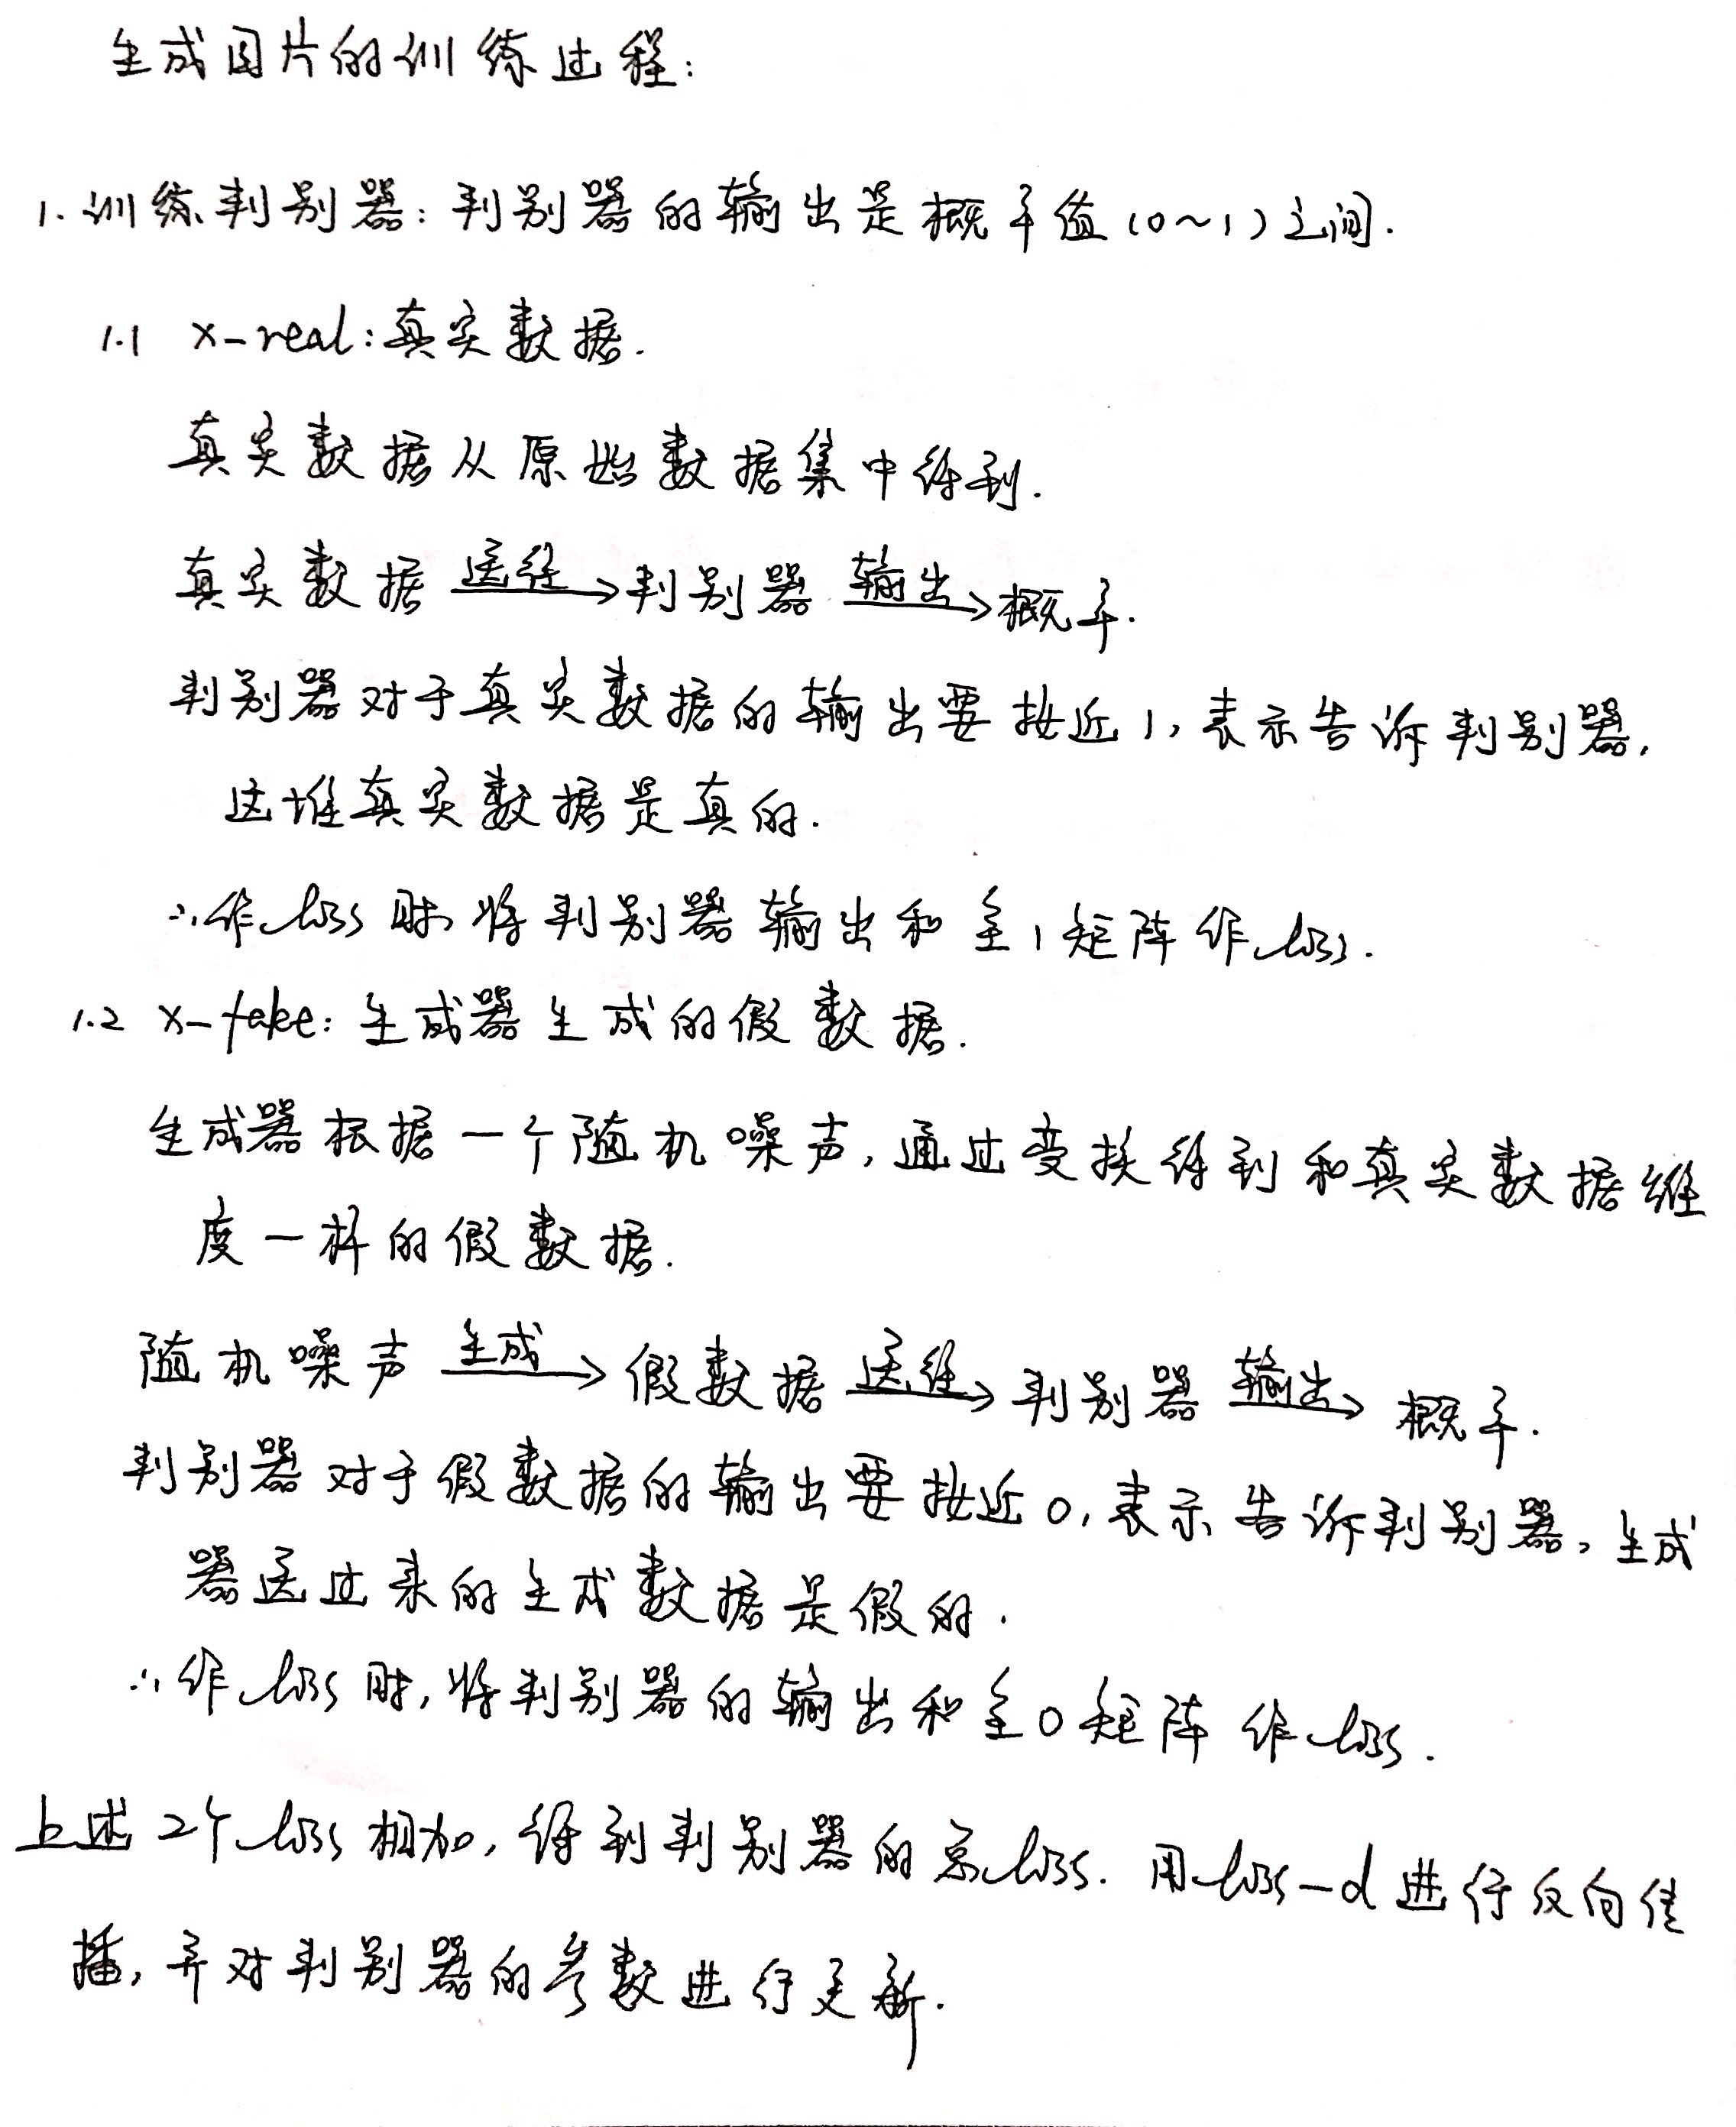 生成图片的训练过程:
1. 训练判别器: 判别器的输出是概率值(0~1)之间.
1.1 x-real: 真实数据.
真实数据从原始数据集中得到.
真实数据 送往→ 判别器 输出→ 概率.
判别器对于真实数据的输出要接近1, 表示告诉判别器,
这堆真实数据是真的.
∴作loss时, 将判别器输出和全1矩阵作loss.
1.2 x-fake: 生成器生成的假数据.
生成器根据一个随机噪声, 通过变换得到和真实数据维
度一样的假数据.
随机噪声 生成→ 假数据 送往→ 判别器 输出→ 概率.
判别器对于假数据的输出要接近0, 表示告诉判别器, 生成
器送过来的生成数据是假的.
∴作loss时, 将判别器的输出和全0矩阵作loss.
上述2个loss相加, 得到判别器的总loss. 用loss-d进行反向传
播, 并对判别器的参数进行更新.